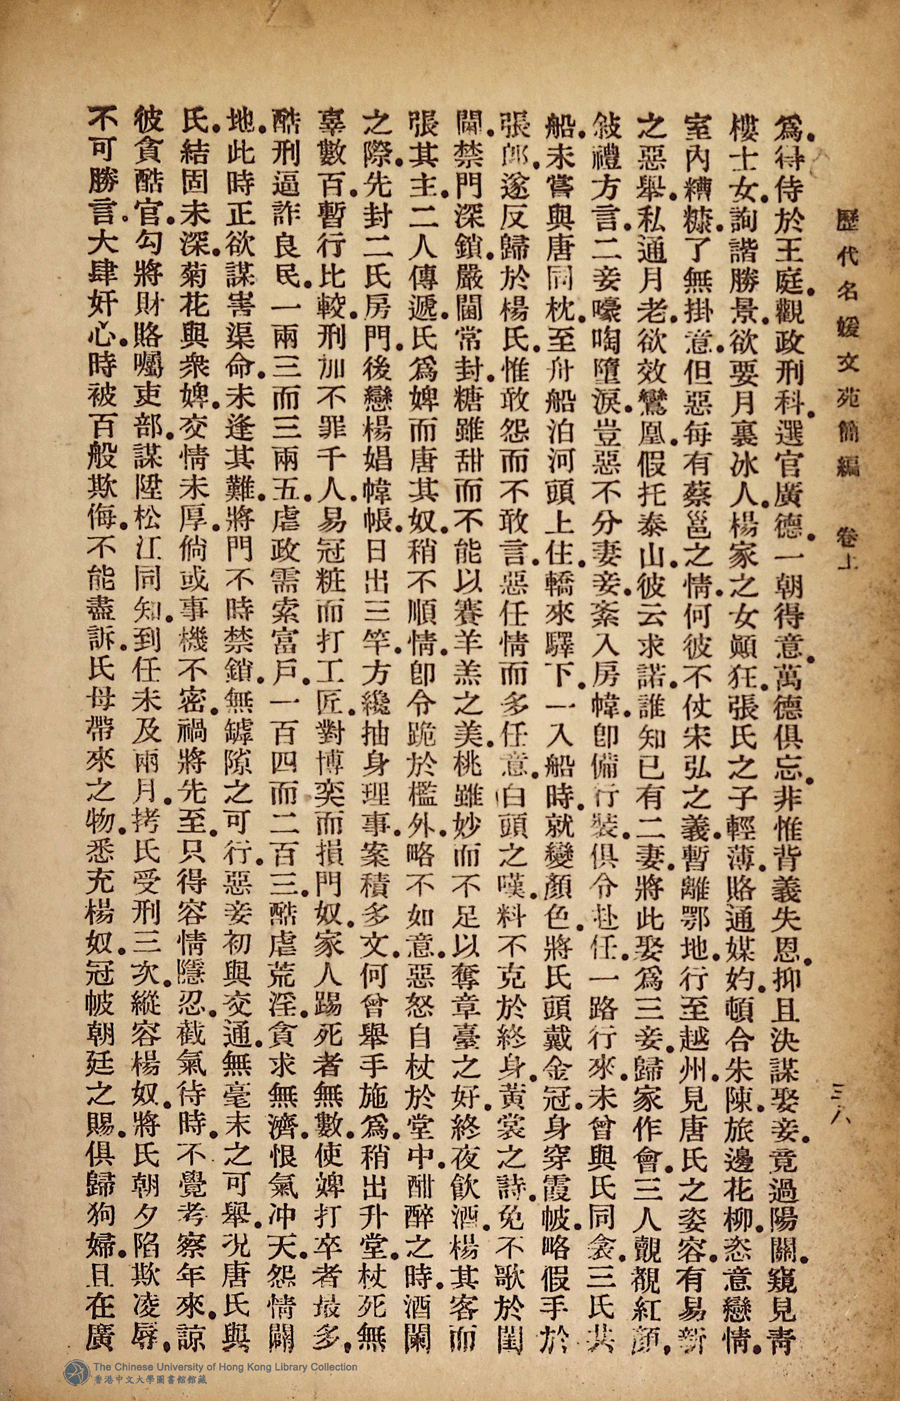 歷代名媛文苑簡編 卷上 三八
爲得侍於王庭觀政刑科選官廣德一朝得意萬德俱忘非惟背義失恩抑且決謀娶妾竟過陽關窺見靑
樓士女詢諧勝景欲要月裏冰人楊家之女顚狂張氏之子輕薄賂通媒妁頓合朱陳旅邊花柳恣意戀情
室內糟糠了無掛意但惡每有蔡邕之情何彼不仗宋弘之義暫離鄂地行至越州見唐氏之姿容有易新
之惡舉私通月老欲效鸞凰假托泰山彼云求諾誰知已有二妻將此娶爲三妾歸家作會三人覿覩紅顏
敍禮方言二妾嚎啕墮淚豈惡不分妻妾紊入房幃卽備行裝俱令赴任一路行來未曾與氏同衾三氏共
船未嘗與唐同枕至舟船泊河頭上住轎來驛下一入船時就變顏色將氏頭戴金冠身穿霞帔略假手於
張郎遂反歸於楊氏惟敢怨而不敢言惡任情而多任意白頭之嘆料不克於終身黃裳之詩免不歌於閨
閫禁門深鎖嚴閫常封糖雖甜而不能以賽羊羔之美桃雖妙而不足以奪章臺之好終夜飮酒楊其客而
張其主二人傳遞氏爲婢而唐其奴稍不順情卽令跪於檻外略不如意惡怒自杖於堂中酣醉之時酒闌
之際先封二氏房門後戀楊娼幃帳日出三竿方纔抽身理事案積多文何曾舉手施爲稍出升堂杖死無
辜數百暫行比較刑加不罪千人易冠粧而打工匠對博奕而損門奴家人踢死者無數使婢打卒者最多
酷刑逼詐良民一兩三而三兩五虐政需索富戶一百四而二百三酷虐荒淫貪求無濟恨氣冲天怨情闢
地此時正欲謀害渠命未逢其難將門不時禁鎖無罅隙之可行惡妾初與交通無毫末之可舉況唐氏與
氏結固未深菊花與衆婢交情未厚倘或事機不密禍將先至只得容情隱忍截氣待時不覺考察年來諒
彼貪酷官勾將財賂囑吏部謀陞松江同知到任未及兩月拷氏受刑三次縱容楊奴將氏朝夕陷欺凌辱
不可勝言大肆奸心時被百般欺侮不能盡訴氏母帶來之物悉充楊奴冠帔朝廷之賜俱歸狗婦且在廣
The Chinese University of Hong Kong Library Collection
香港中文大學圖書館館藏